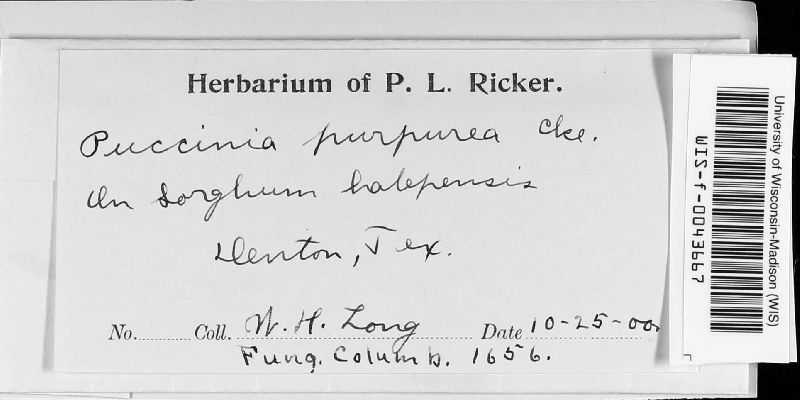 Herbarium of P. L. Ricker.
Puccinia purpurea Cke.
On Sorghum halepensis
Denton, Tex.
No. Coll. W. H. Long Date 10-25-00.
Fung. Columb. 1656.
University of Wisconsin-Madison (WIS)
WIS-f-0043667